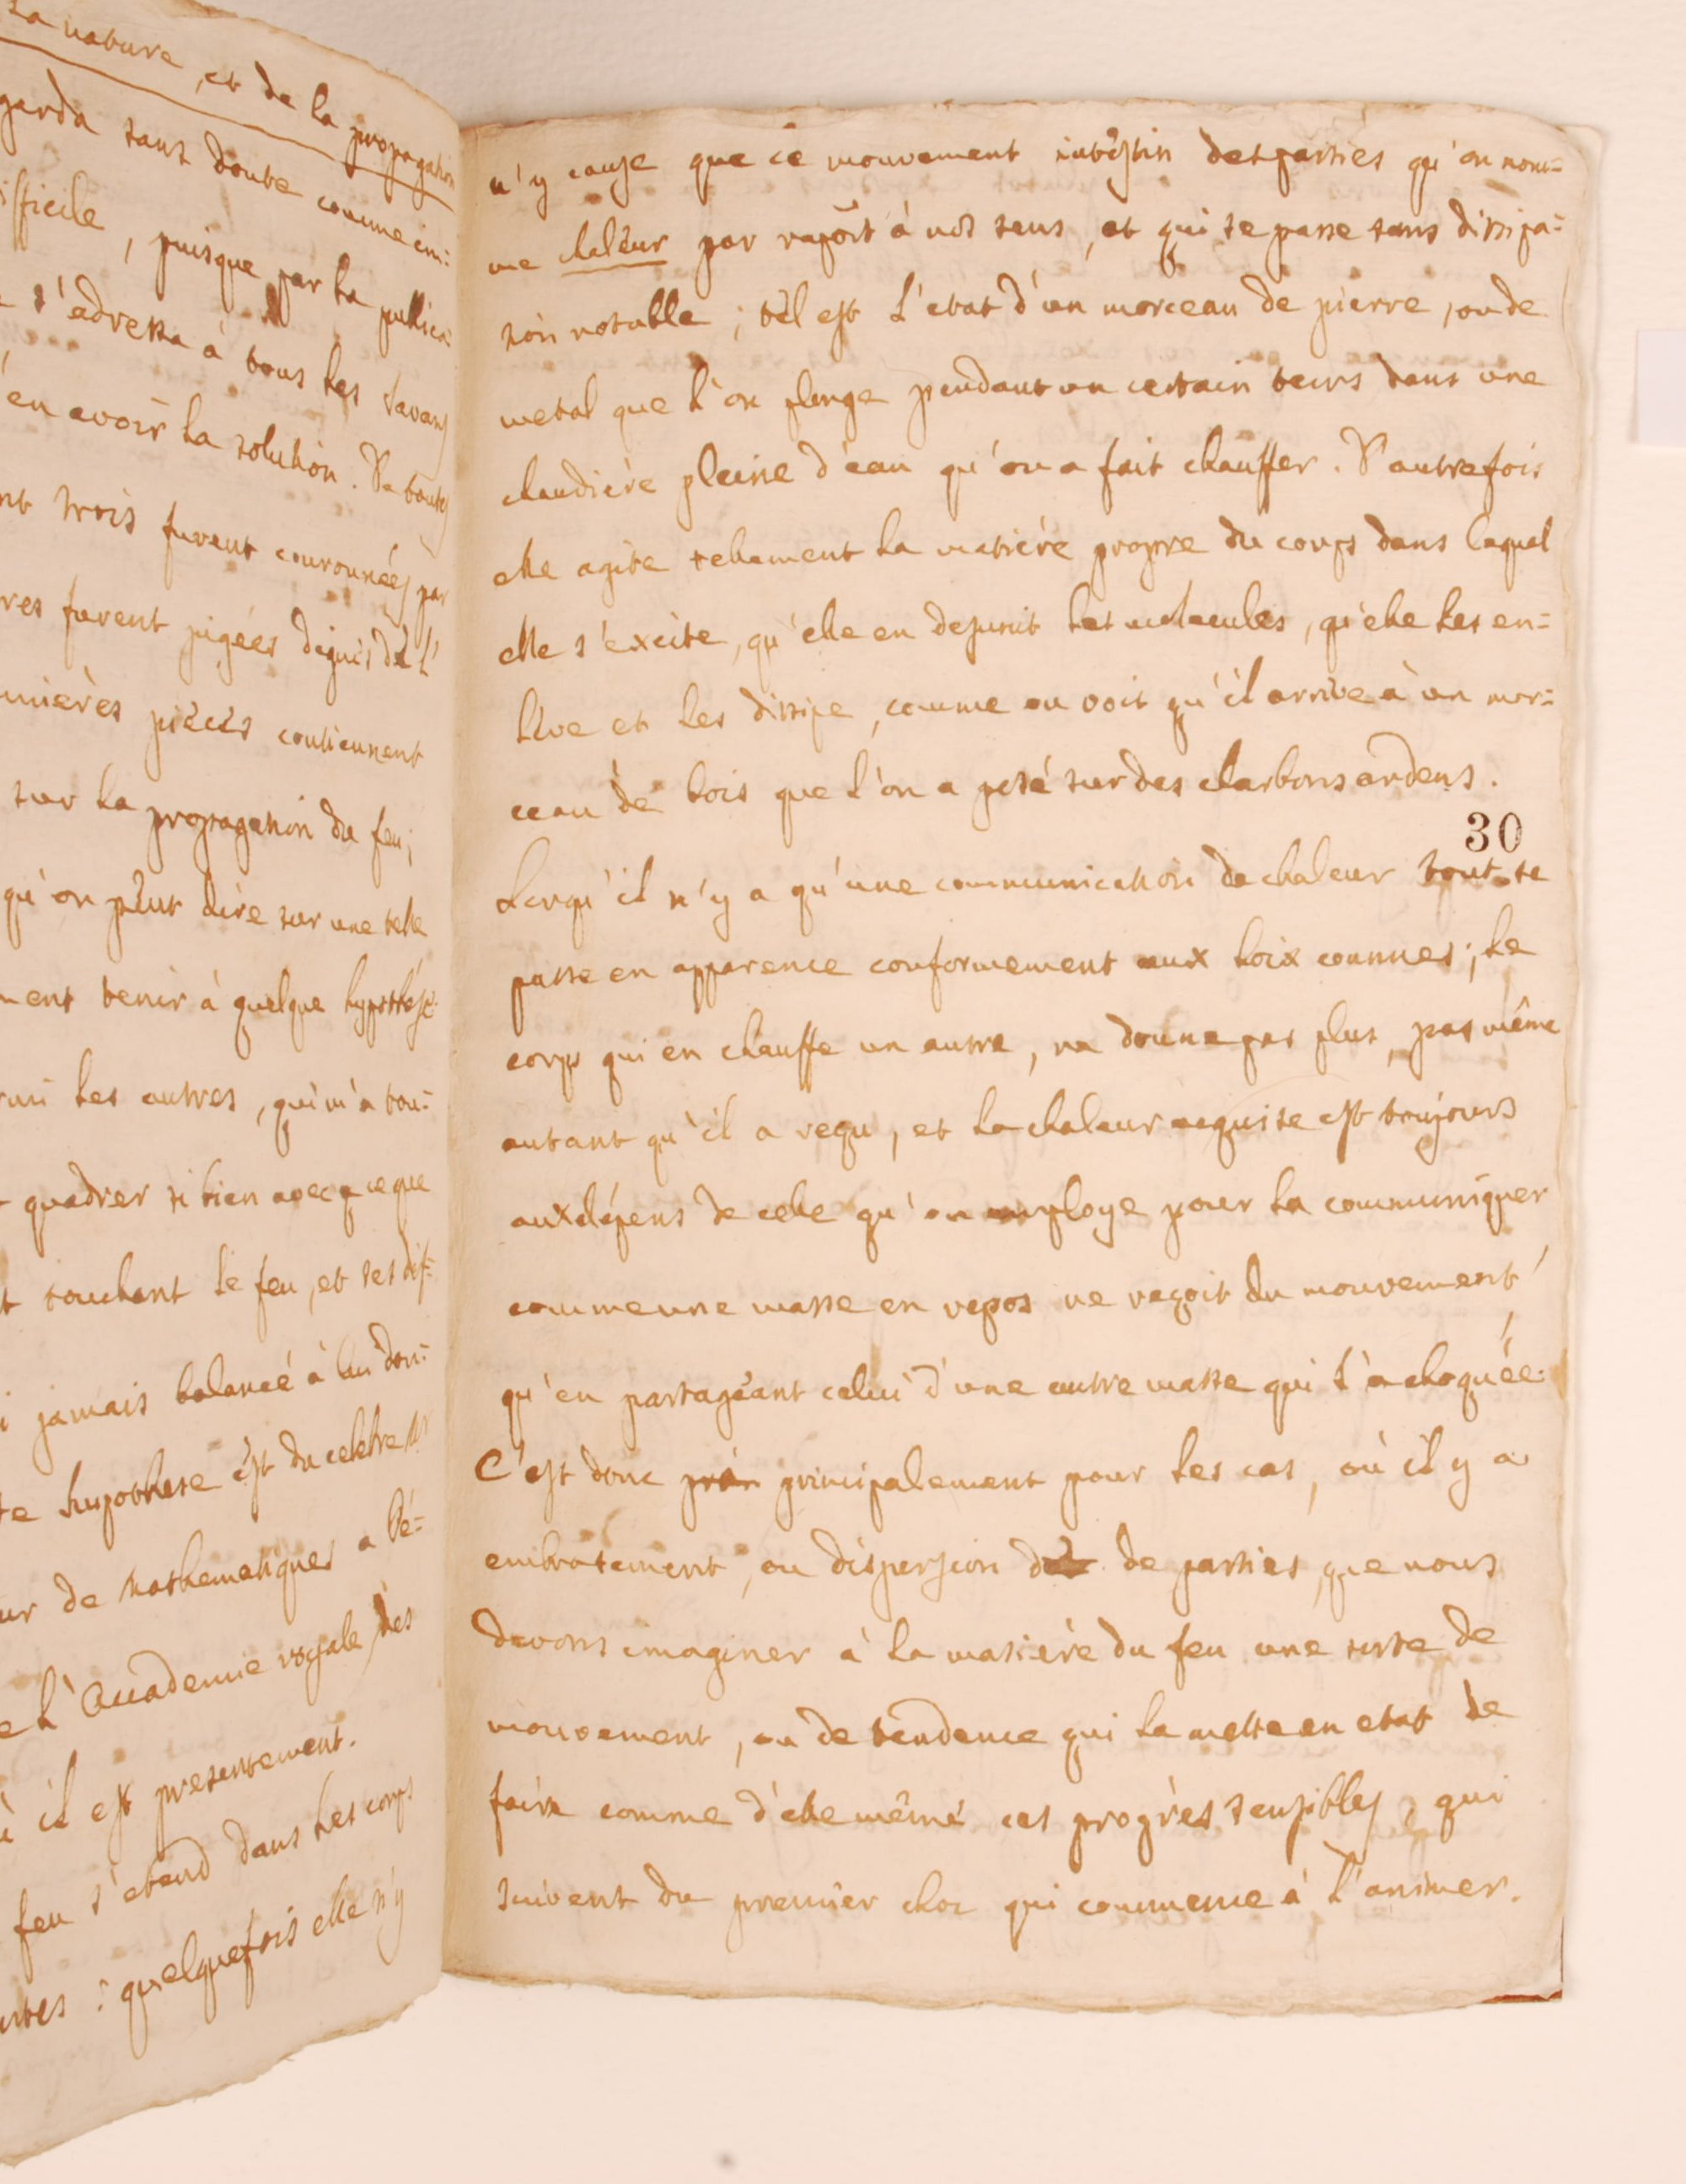 la nature, et de la propagation
garda sans doute comme em=
ifficile, puisque par la publica=
s'adressa à tous les savans
en avoir la solution. De toutes
nt trois furent couronnées par
res furent jugées dignes de l'
mières pièces contiennent
sur la propagation du feu;
qu'on peut dire sur une telle
ment tenir à quelque hypothese
rmi les autres, qui m'a tou=
quadrer si bien avec ce que
t touchant le feu, et ses dif=
i jamais balancé à lui don=
te hypothese est du celebre Mr
ur de Mathematiques a Pé=
e l'Academie royale des
ù il est presentement.
feu s'etend dans les corps
rtes: quelquefois elle n'y
n'y cause que ce mouvement intestin des parties qu'on nom=
me chaleur par raport à nos sens, et qui se passe sans dissipa=
tion notable; tel est l'etat d'un morceau de pierre, ou de
metal que l'on plonge pendant un certain tems dans une
chaudière pleine d'eau qu'on a fait chauffer. D'autrefois
elle agite tellement la matière propre du corps dans laquel
elle s'excite, qu'elle en desunit les molecules, qu'elle les en=
lève et les dissipe, comme on voit qu'il arrive à un mor=
ceau de bois que l'on a posé sur des charbons ardens.
30
Lorsqu'il n'y a qu'une communication de chaleur tout se
passe en apparence conformement aux loix connues; le
corps qui en chauffe un autre, ne donne pas plus, pas même
autant qu'il a reçu, et la chaleur acquise est toujours
aux dépens de celle qu'on employe pour la communiquer
comme une masse en repos ne reçoit du mouvement
qu'en partageant celui d'une autre masse qui l'a choquée.
C'est donc prin principalement pour les cas, où il y a
embrasement, ou dispersion des de parties, que nous
devons imaginer à la matière du feu une sorte de
mouvement, ou de tendence qui la mette en etat de
faire comme d'elle même ces progrès sensibles, qui
suivent du premier choc qui commence à l'animer.